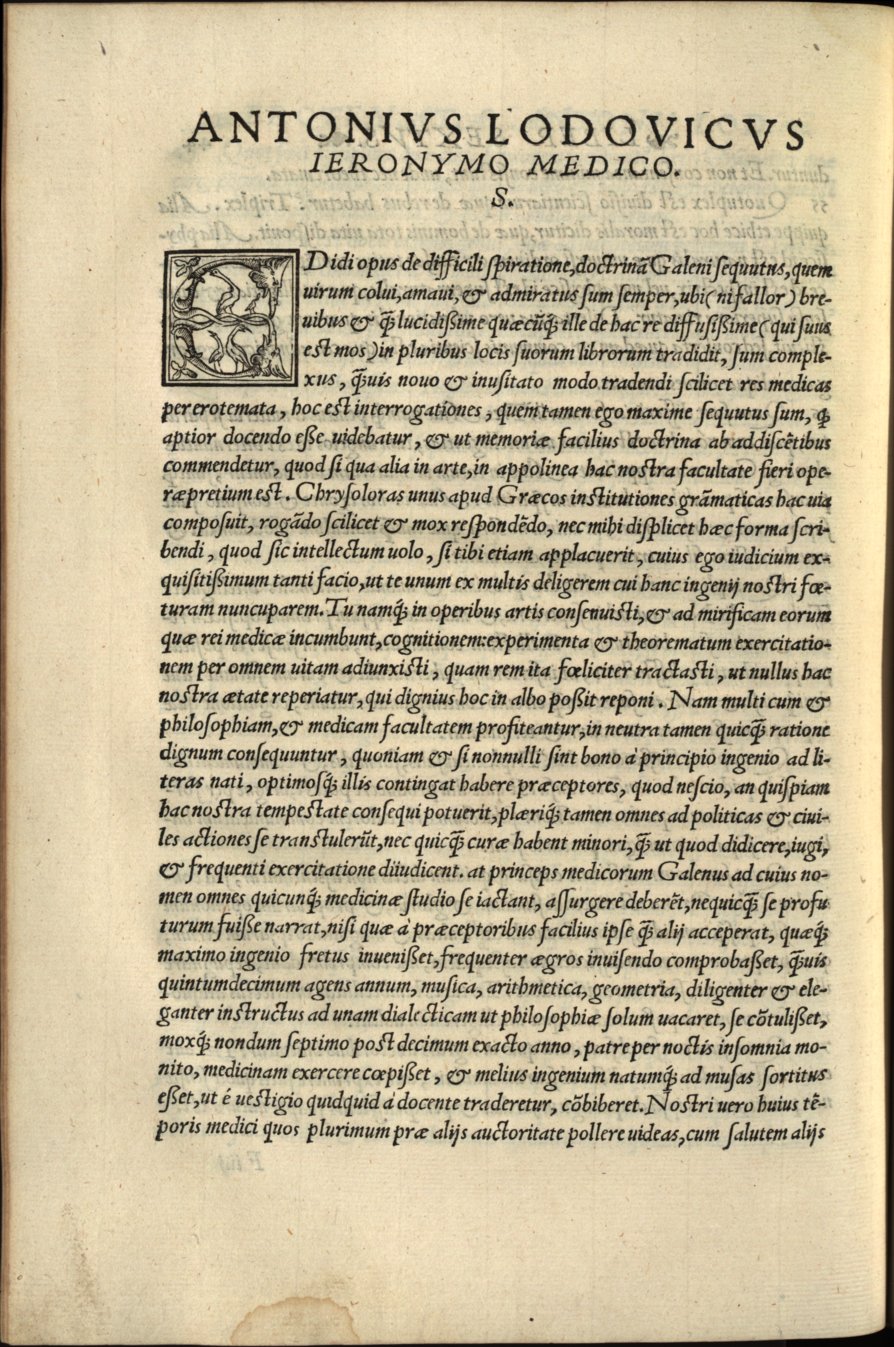 ANTONIVS LODOVICVS
IERONYMO MEDICO.
S.
EDidi opus de difficili ſpiratione, doctrinã Galeni ſequutus, quem
uirum colui, amaui, & admiratus ſum ſemper, ubi (ni fallor) bre-
uibus & q̃ lucidißime quæcũq; ille de hac re diffuſißime (qui ſuus
eſt mos) in pluribus locis ſuorum librorum tradidit, ſum comple-
xus, q̃uis nouo & inuſitato modo tradendi ſcilicet res medicas
per erotemata, hoc eſt interrogationes, quem tamen ego maxime ſequutus ſum, ꝙ
aptior docendo eße uidebatur, & ut memoriæ facilius doctrina ab addiſcẽtibus
commendetur, quod ſi qua alia in arte, in appolinea hac noſtra facultate fieri ope-
ræpretium eſt. Chryſoloras unus apud Græcos inſtitutiones grãmaticas hac uia
compoſuit, rogãdo ſcilicet & mox reſpondẽdo, nec mihi diſplicet hæc forma ſcri-
bendi, quod ſic intellectum uolo, ſi tibi etiam applacuerit, cuius ego iudicium ex-
quiſitißimum tanti facio, ut te unum ex multis deligerem cui hanc ingenij noſtri fœ-
turam nuncuparem. Tu namq; in operibus artis conſenuiſti, & ad mirificam eorum
quæ rei medicæ incumbunt, cognitionem: experimenta & theorematum exercitatio-
nem per omnem uitam adiunxiſti, quam rem ita fœliciter tractaſti, ut nullus hac
noſtra ætate reperiatur, qui dignius hoc in albo poßit reponi. Nam multi cum &
philoſophiam, & medicam facultatem profiteantur, in neutra tamen quicq̃ ratione
dignum conſequuntur, quoniam & ſi nonnulli ſint bono à principio ingenio ad li-
teras nati, optimoſq; illis contingat habere præceptores, quod neſcio, an quiſpiam
hac noſtra tempeſtate conſequi potuerit, plæriq; tamen omnes ad politicas & ciui-
les actiones ſe tranſtulerũt, nec quicq̃ curæ habent minori, q̃ ut quod didicere, iugi,
& frequenti exercitatione diiudicent. at princeps medicorum Galenus ad cuius no-
men omnes quicunq; medicinæ ſtudio ſe iactant, aſſurgere deberẽt, nequicq̃ ſe profu
turum fuiße narrat, niſi quæ à præceptoribus facilius ipſe q̃ alij acceperat, quæq;
maximo ingenio fretus inuenißet, frequenter ægros inuiſendo comprobaßet, q̃uis
quintumdecimum agens annum, muſica, arithmetica, geometria, diligenter & ele-
ganter inſtructus ad unam dialecticam ut philoſophiæ ſolum uacaret, ſe cõtulißet,
moxq; nondum ſeptimo poſt decimum exacto anno, patre per noctis inſomnia mo-
nito, medicinam exercere cœpißet, & melius ingenium natumq; ad muſas ſortitus
eßet, ut é ueſtigio quidquid à docente traderetur, cõbiberet. Noſtri uero huius tẽ-
poris medici quos plurimum præ alijs auctoritate pollere uideas, cum ſalutem alijs